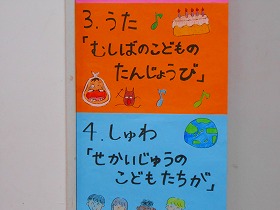 3.うた
「むしばのこどもの
たんじょうび」
4.しゅわ
「せかいじゅうの
こどもたちが」